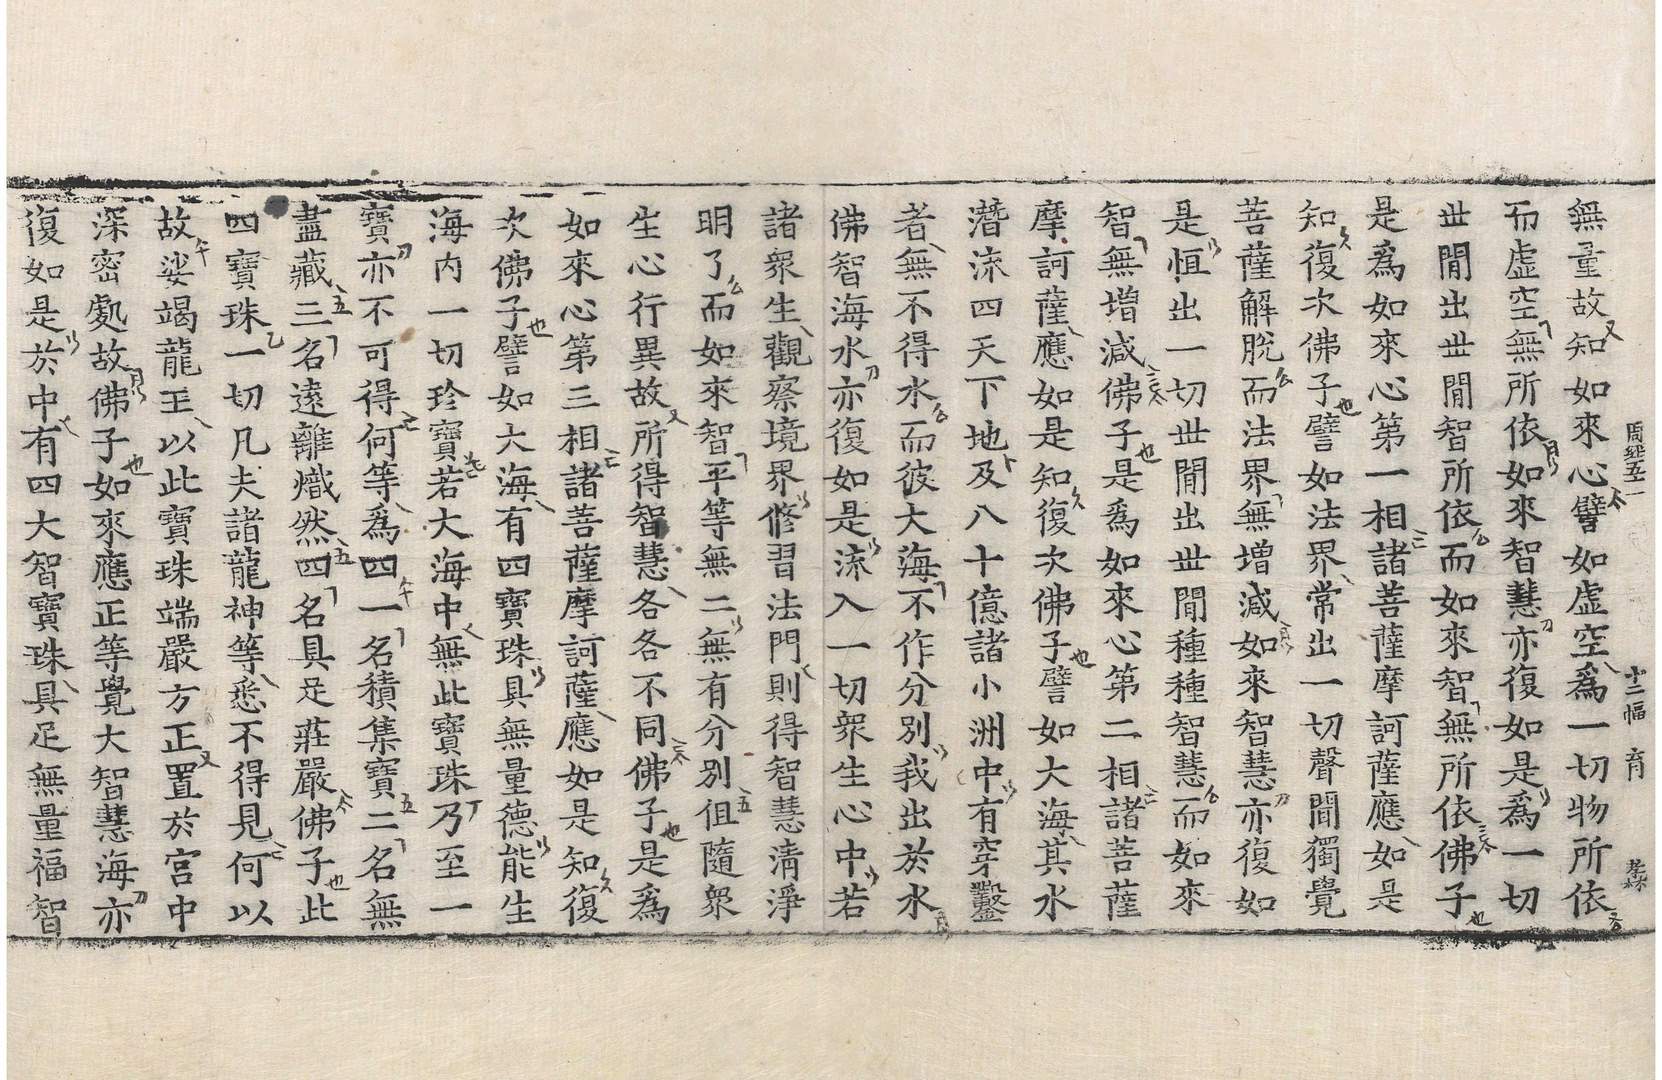 周經五一 十二幅 育
無量故知如來心譬如虛空爲一切物所依
而虛空無所依如來智慧亦復如是爲一切
世閒出世閒智所依而如來智無所依佛子
是爲如來心第一相諸菩薩摩訶薩應如是
知復次佛子譬如法界常出一切聲聞獨覺
菩薩解脫而法界無增減如來智慧亦復如
是恒出一切世閒出世閒種種智慧而如來
智無增減佛子是爲如來心第二相諸菩薩
摩訶薩應如是知復次佛子譬如大海其水
潛流四天下地及八十億諸小洲中有穿鑿
者無不得水而彼大海不作分別我出於水
佛智海水亦復如是流入一切衆生心中若
諸衆生觀察境界修習法門則得智慧淸淨
明了而如來智平等無二無有分別但隨衆
生心行異故所得智慧各各不同佛子是爲
如來心第三相諸菩薩摩訶薩應如是知復
次佛子譬如大海有四寶珠具無量德能生
海內一切珍寶若大海中無此寶珠乃至一
寶亦不可得何等爲四一名積集寶二名無
盡藏三名遠離熾然四名具足莊嚴佛子此
四寶珠一切凡夫諸龍神等悉不得見何以
故娑竭龍王以此寶珠端嚴方正置於宮中
深密處故佛子如來應正等覺大智慧海亦
復如是於中有四大智寶珠具足無量福智